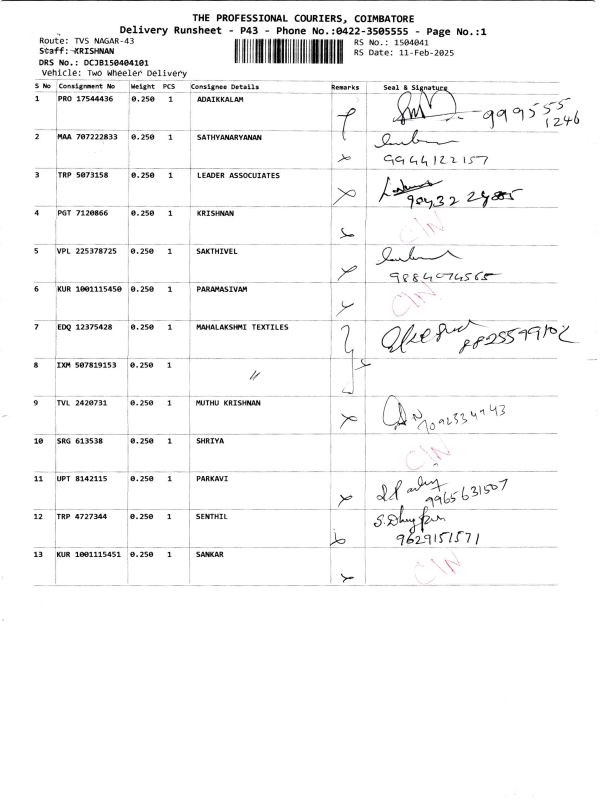 THE PROFESSIONAL COURIERS, COIMBATORE
Delivery Runsheet - P43 - Phone No.:0422-3505555 - Page No.:1
Route: TVS NAGAR-43 RS No.: 1504041
Staff: KRISHNAN RS Date: 11-Feb-2025
DRS No.: DCJB150404101
Vehicle: Two Wheeler Delivery
S No Consignment No Weight PCS Consignee Details Remarks Seal & Signature
1 PRO 17544436 0.250 1 ADAIKKALAM 999555
1246
2 MAA 707222833 0.250 1 SATHYANARYANAN
9944122157
3 TRP 5073158 0.250 1 LEADER ASSOCUIATES
4 PGT 7120866 0.250 1 KRISHNAN CIN
5 VPL 225378725 0.250 1 SAKTHIVEL
9884074565
6 KUR 1001115450 0.250 1 PARAMASIVAM CIN
7 EDQ 12375428 0.250 1 MAHALAKSHMI TEXTILES
8 IXM 507819153 0.250 1 〃
9 TVL 2420731 0.250 1 MUTHU KRISHNAN
10 SRG 613538 0.250 1 SHRIYA CIN
11 UPT 8142115 0.250 1 PARKAVI
9965631507
12 TRP 4727344 0.250 1 SENTHIL
9629151571
13 KUR 1001115451 0.250 1 SANKAR CIN